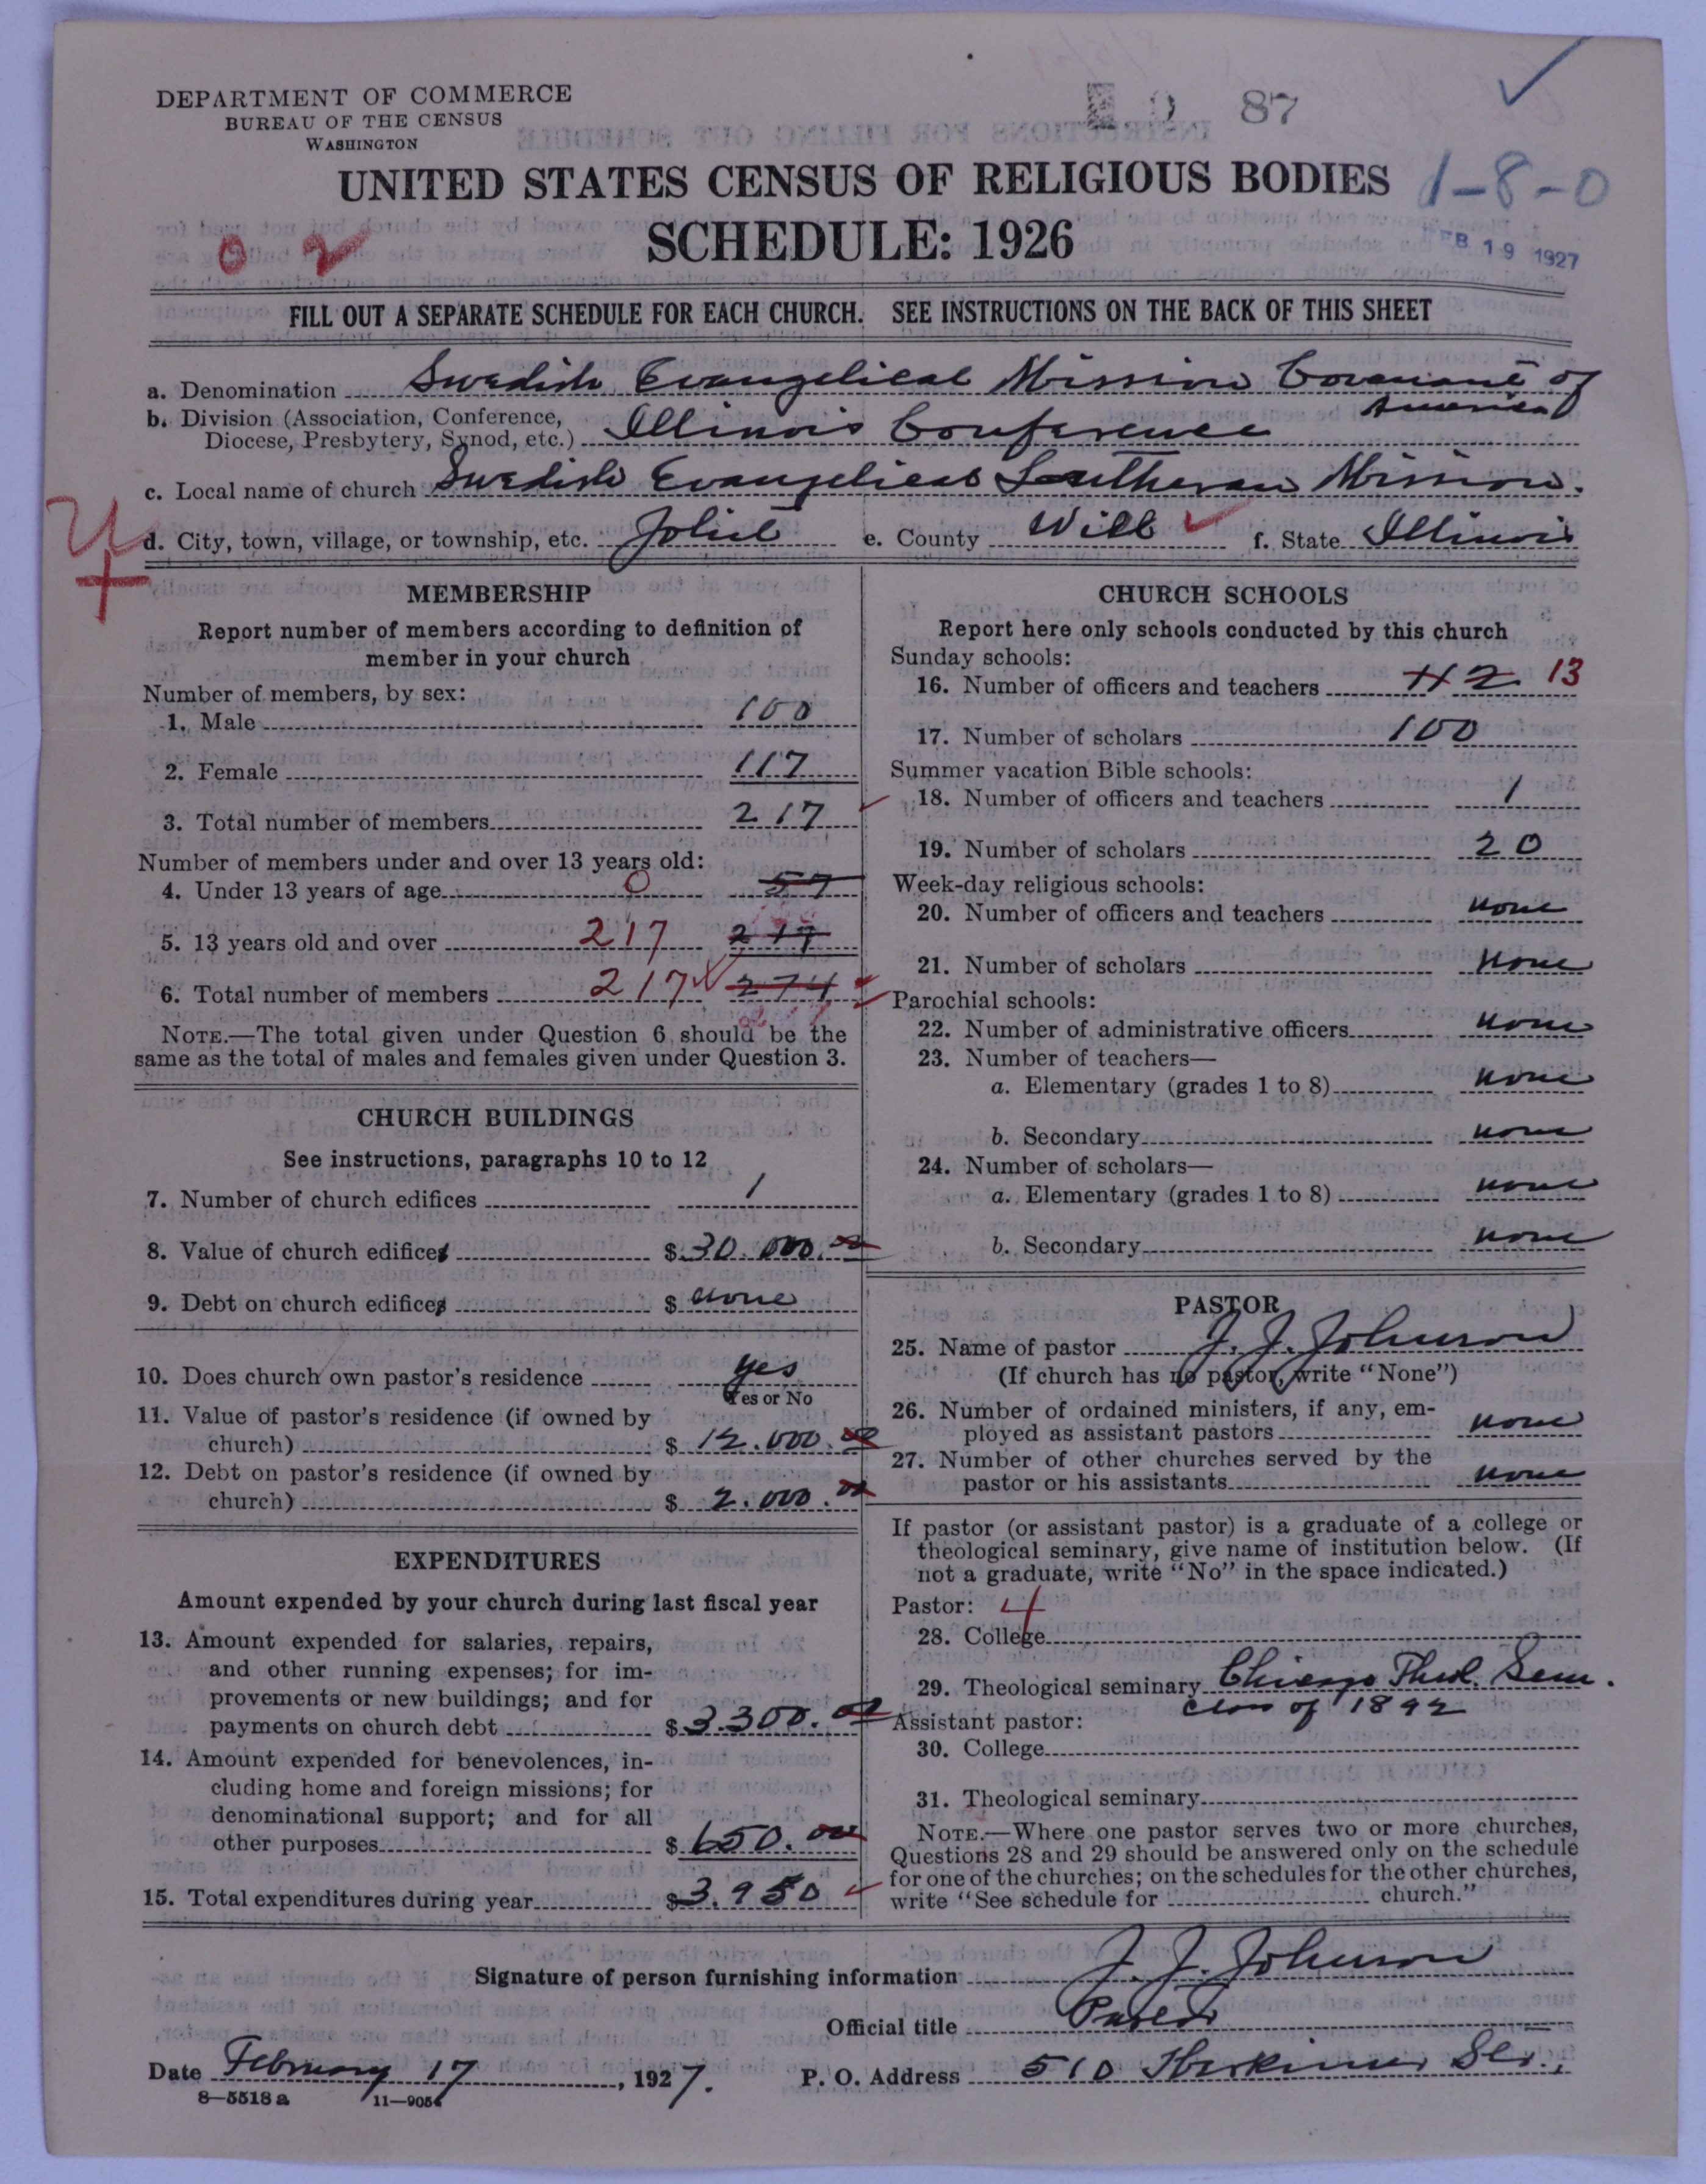 DEPARTMENT OF COMMERCE
BUREAU OF THE CENSUS
WASHINGTON
87
1-8-0
UNITED STATES CENSUS OF RELIGIOUS BODIES
SCHEDULE: 1926
0 2
FEB. 19 1927
FILL OUT A SEPARATE SCHEDULE FOR EACH CHURCH. SEE INSTRUCTIONS ON THE BACK OF THIS SHEET
a. Denomination Swedish Evangelical Mission Covenant of America
b. Division (Association, Conference,
Diocese, Presbytery, Synod, etc.) Illinois Conference
c. Local name of church Swedish Evangelical Lutheran Mission.
d. City, town, village, or township, etc. Joliet e. County Will f. State Illinois
MEMBERSHIP
Report number of members according to definition of
member in your church
Number of members, by sex:
1. Male 100
2. Female 117
3. Total number of members 217
Number of members under and over 13 years old:
4. Under 13 years of age 0 57
5. 13 years old and over 217 217
6. Total number of members 217 274
217
NOTE.—The total given under Question 6 should be the
same as the total of males and females given under Question 3.
CHURCH BUILDINGS
See instructions, paragraphs 10 to 12
7. Number of church edifices 1
8. Value of church edifices $ 30.000.00
9. Debt on church edifices $ none
10. Does church own pastor's residence yes
Yes or No
11. Value of pastor's residence (if owned by
church) $ 12.000.00
12. Debt on pastor's residence (if owned by
church) $ 2.000.00
EXPENDITURES
Amount expended by your church during last fiscal year
13. Amount expended for salaries, repairs,
and other running expenses; for im-
provements or new buildings; and for
payments on church debt $ 3.300.00
14. Amount expended for benevolences, in-
cluding home and foreign missions; for
denominational support; and for all
other purposes $ 650.00
15. Total expenditures during year $ 3.950
CHURCH SCHOOLS
Report here only schools conducted by this church
Sunday schools:
16. Number of officers and teachers 13
17. Number of scholars 100
Summer vacation Bible schools:
18. Number of officers and teachers 1
19. Number of scholars 20
Week-day religious schools:
20. Number of officers and teachers none
21. Number of scholars none
Parochial schools:
22. Number of administrative officers none
23. Number of teachers—
a. Elementary (grades 1 to 8) none
b. Secondary none
24. Number of scholars—
a. Elementary (grades 1 to 8) none
b. Secondary none
PASTOR
25. Name of pastor J. J. Johnson
(If church has no pastor, write "None")
26. Number of ordained ministers, if any, em-
ployed as assistant pastors none
27. Number of other churches served by the
pastor or his assistants none
If pastor (or assistant pastor) is a graduate of a college or
theological seminary, give name of institution below. (If
not a graduate, write "No" in the space indicated.)
Pastor: 4
28. College
29. Theological seminary Chicago Theol. Sem.
class of 1892
Assistant pastor:
30. College
31. Theological seminary
NOTE.—Where one pastor serves two or more churches,
Questions 28 and 29 should be answered only on the schedule
for one of the churches; on the schedules for the other churches,
write "See schedule for church."
Signature of person furnishing information J. J. Johnson
Official title Pastor
Date February 17, 1927. P. O. Address 510 Herkimer Str.,
8—5518 a 11—9054